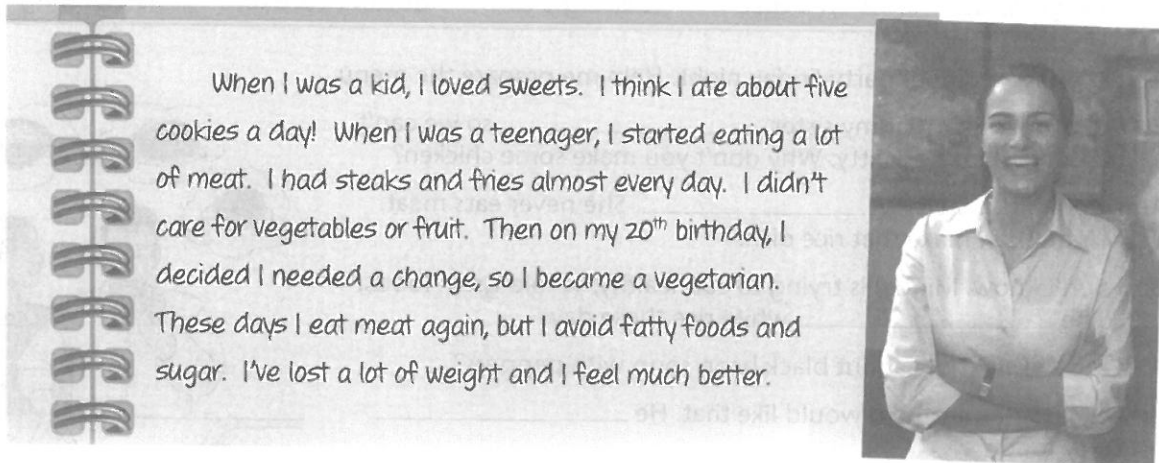 When I was a kid, I loved sweets. I think I ate about five
cookies a day! When I was a teenager, I started eating a lot
of meat. I had steaks and fries almost every day. I didn't
care for vegetables or fruit. Then on my 20th birthday, I
decided I needed a change, so I became a vegetarian.
These days I eat meat again, but I avoid fatty foods and
sugar. I've lost a lot of weight and I feel much better.